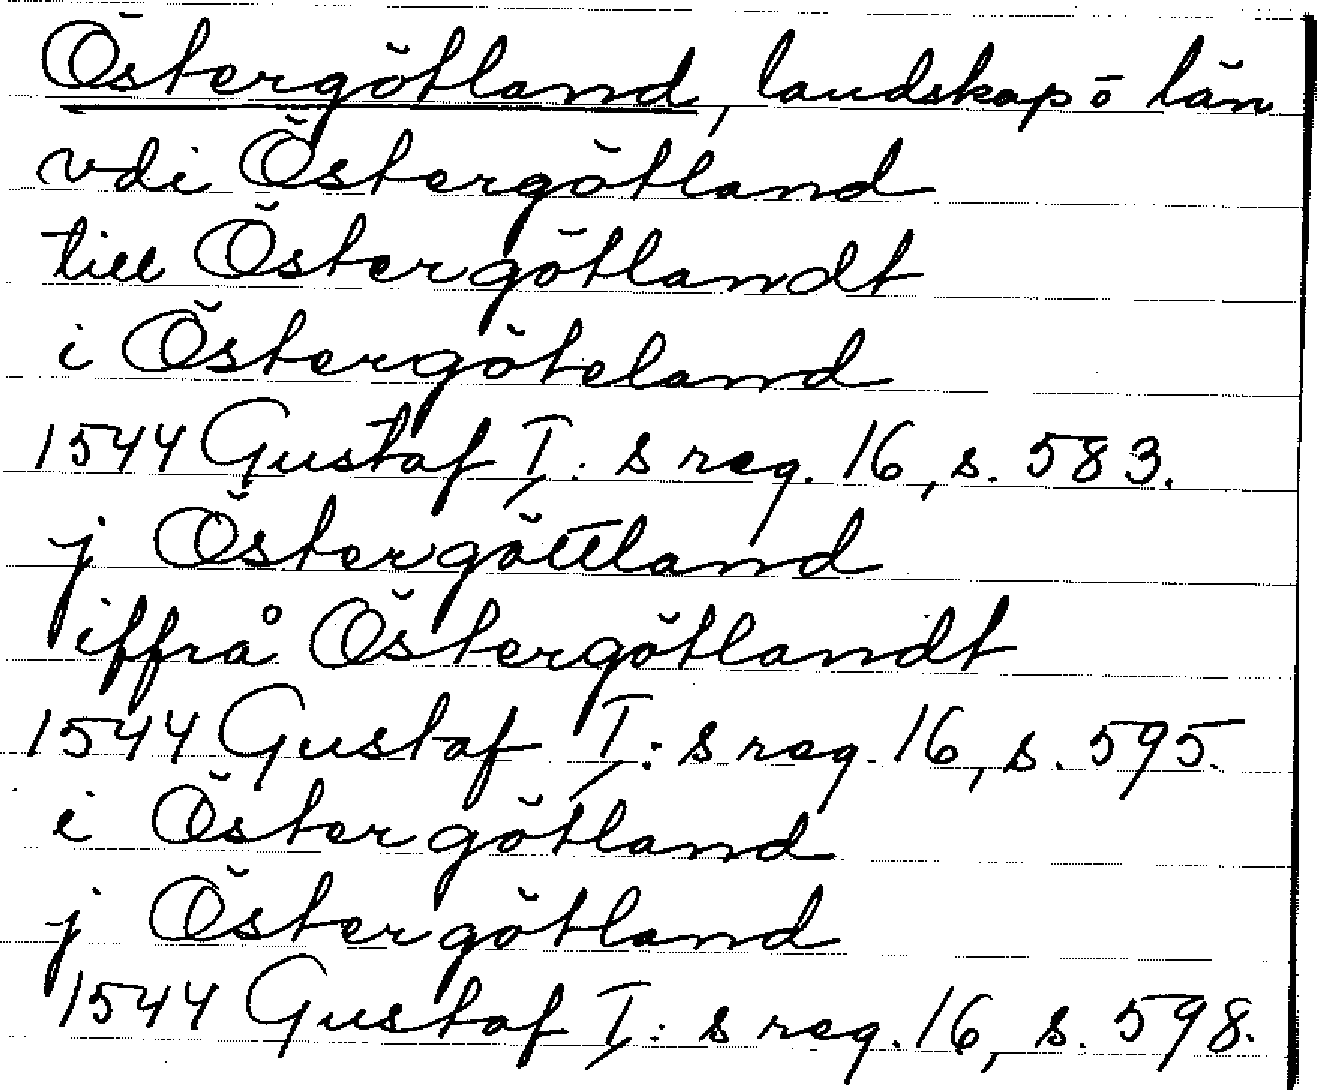 Östergötland, landskap o län
vdi Östergötland
till Östergötlandt
i Östergöteland
1544 Gustaf I: s reg. 16, s. 583.
j Östergöttland
iffrå Östergötlandt
1544 Gustaf I: s reg. 16, s. 595.
i Östergötland
j Östergötland
1544 Gustaf I: s reg. 16, s. 598.